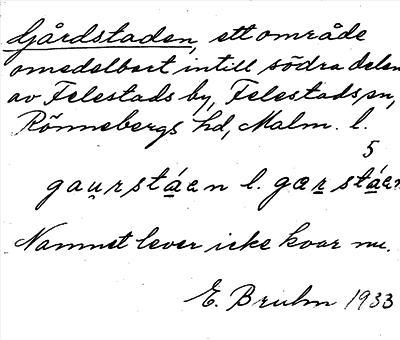 Gårdstaden, ett område
omedelbart intill södra delen
av Felestads by, Felestads sn,
Rönnebergs hd, Malm. l.
5
gaụrstáen l. gærstáen
Namnet lever icke kvar nu.
E. Bruhm 1933